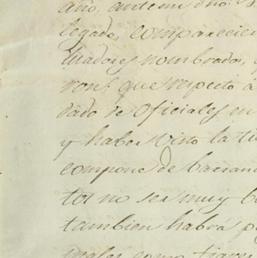 año, ante mi dho.
legado, comparecie
tuados nombrados,
ron: que respecto a
dado de oficiales en
y haber visto la tie
compone de barran
tos no ser muy b
tambien habrá p